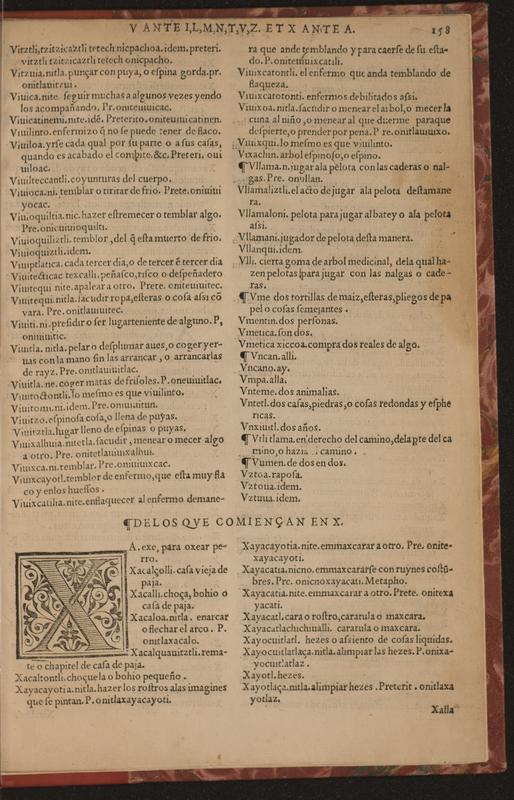 V ANTE I,L,M,N,T,V,Z. ET X ANTE A.
158
Vitztli,tzitzicaztli tetech nicpachoa.idem.preteri.
vitztli tzitzicaztli tetech onicpacho.
Vitzuia.nitla.punçar con puya, o espina gorda.pr.
onitlauitzui.
Viuica.nite. seguir muchas a algunos vezes yendo
los acompañando. Pr.oniteuiuicac.
Viuicatinemi.nite.idē. Preterito.oniteuiuicatinen.
Viuilinto.enfermizo q̄ no se puede tener de flaco.
Viuiloa.yrse cada qual por su parte o a sus casas,
quando es acabado el combite.&c.Preteri, oui
uiloac.
Viuilteccantli.coyunturas del cuerpo.
Viuioca.ni. temblar o tiritar de frio. Prete.oniuiui
yocac.
Viuioquiltia.nic.hazer estremecer o temblar algo.
Pre.onicuiuioquilti.
Viuioquiliztli. temblor, del q̄ esta muerto de frio.
Viuioquiztli.idem.
Viuiptlatica.cada tercer dia,o de tercer ē tercer dia
Viuitecticac texcalli.peñasco,risco o despeñadero
Viuitequi nite.apalear a otro. Prete. oniteuiuitec.
Viuitequi.nitla.sacudir ropa,esteras o cosa assi cō
vara. Pre.onitlauiuitec.
Viuiti.ni.presidir o ser lugarteniente de alguno. P,
oniuiuitic.
Viuitla. nitla. pelar o desplumar aues,o coger yer-
uas con la mano sin las arrancar, o arrancarlas
de rayz. Pre.onitlauiuitlac.
Viuitla. ne. coger matas de frisoles. P.oneuiuitlac.
Viuitoctontli.lo mesmo es que viuilinto.
Viuitomi.ni.idem. Pre.oniuiuitun.
Viuitzo.espinosa cosa,o llena de puyas.
Viuitztla.lugar lleno de espinas o puyas.
Viuixalhuia.nitetla.sacudir, menear o mecer algo
a otro. Pre. onitetlauiuixalhui.
Viuixca.ni.temblar. Pre.oniuiuixcac.
Viuixcayotl.temblor de enfermo, que esta muy fla
co y enlos huessos.
Viuixcatilia.nite.enflaquecer al enfermo demane-
ra que ande temblando y para caerse de su esta-
do.P.oniteuiuixcatili.
Viuixcatontli.el enfermo que anda temblando de
flaqueza.
Viuixcatotonti.enfermos debilitados assi.
Viuixoa.nitla.sacudir o menear el arbol,o mecer la
cuna al niño ,o menear al que duerme paraque
despierte,o prender por pena. P re.onitlauiuixo.
Viuixqui.lo mesmo es que viuilinto.
Vixachin.arbol espinoso,o espino.
¶Vllama.n.jugar ala pelota con las caderas o nal-
gas. Pre. onullan.
Vllamaliztli.el acto de jugar ala pelota destamane
ra.
Vllamaloni. pelota para jugar al batey o ala pelota
assi.
Vllamani.jugador de pelota desta manera.
Vllanqui.idem.
Vlli. cierta goma de arbol medicinal, dela qual ha-
zen pelotas para jugar con las nalgas o cade-
ras.
¶Vme dos tortillas de maiz,esteras,pliegos de pa
pel o cosas semejantes .
Vmentin.dos personas.
Vmetica.son dos.
Vmetica xiccoa.compra dos reales de algo.
¶Vncan.alli.
Vncano.ay.
Vmpa.alla.
Vnteme.dos animalias.
Vntetl.dos casas,piedras,o cosas redondas y esphe
ricas.
Vnxiuitl.dos años.
¶Vtli tlama.en derecho del camino,dela pte del ca
mino,o hazia camino .
¶Vumen.de dos en dos.
Vztoa.raposa.
Vztoua.idem.
Vztuua.idem.
¶DELOS QVE COMIENÇAN EN X.
XA. exe, para oxear pe-
rro.
Xacalçolli. casa vieja de
paja.
Xacalli.choça, bohio o
casa de paja.
Xacaloa.nitla. enarcar
o flechar el arco. P.
onitlaxacalo.
Xacalquauitztli.rema-
te o chapitel de casa de paja.
Xacaltontli.choçuela o bohio pequeño .
Xayacayoti a.nitla.hazer los rostros alas imagines
que se pintan.P.onitlaxayacayoti.
Xayacayotia.nite.enmaxcarar a otro. Pre. onite-
xayacayoti.
Xayacatia.nicno.enmaxcararse con ruynes costū-
bres. Pre. onicnoxayacati.Metapho.
Xayacatia.nite.enmaxcarar a otro. Prete. onitexa
yacati.
Xayacatl.cara o rostro,caratula o maxcara.
Xayacatlachichiualli. caratula o maxcara.
Xayocuitlatl. hezes o assiento de cosas liquidas.
Xayocuitlatlaça.nitla.alimpiar las hezes.P.onixa-
yocuitlatlaz .
Xayotl.hezes.
Xayotlaça.nitla.alimpiar hezes . Preterit . onitlaxa
yotlaz.
Xalla